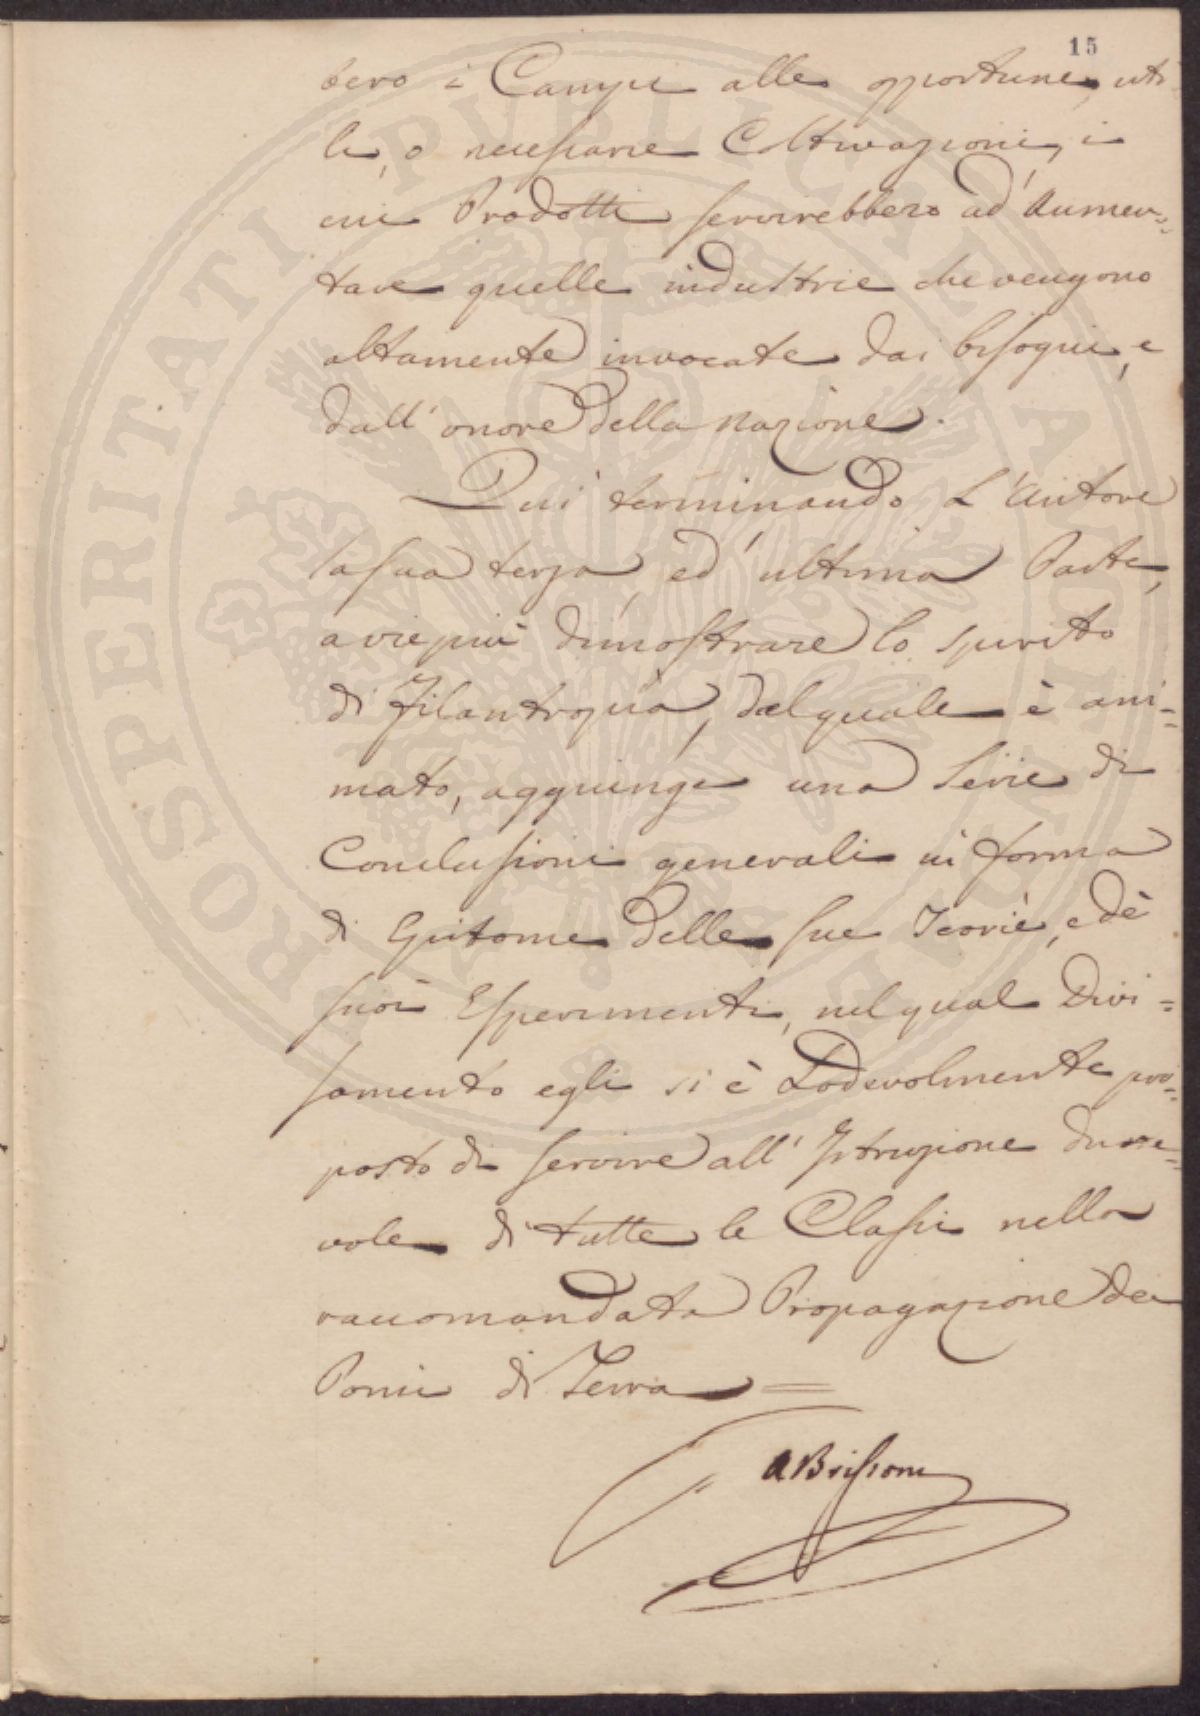 15
bero i Campi alle opportune, uti
li, o necessarie Coltivazioni, i
cui Prodotti servirebbero ad' Aumen=
tare quelle industrie che vengono
altamente invocate dai bisogni, e
dall' onore della Nazione.
Qui terminando L'Autore
la sua terza, ed' ultima Parte,
a vie più dimostrare lo spirito
di Filantropia, dal quale è ani=
mato, aggiunge una Serie di
Conclusioni generali in forma
di Epitome delle sue Teorie, e dè
suoi Esperimenti, nel qual Divi=
samento egli si è Lodevolmente pro=
posto di servire all' Istruzione dure=
vole di tutte le Classi nella
raccomandata Propagazione dei
Pomi di Terra =
A Brissoni
PROSPERITATI PUBLICAE AUGENDAE